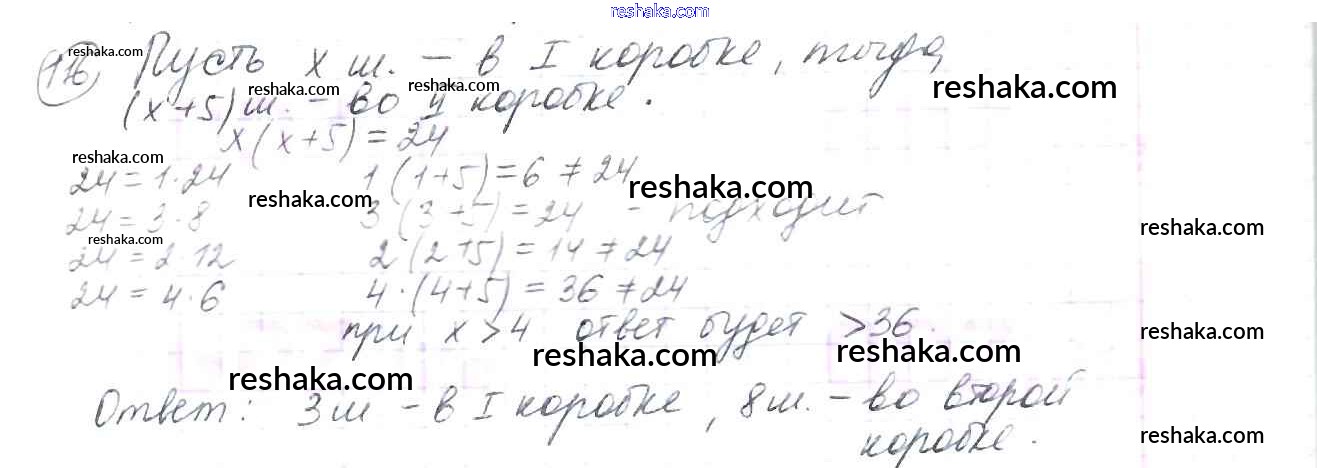 reshaka.com
176) Пусть x ш. – в I коробке, тогда
reshaka.com
reshaka.com
(x+5) ш. – во II коробке.
reshaka.com reshaka.com
x(x+5) = 24
reshaka.com
24 = 1·24 1(1+5) = 6 ≠ 24
reshaka.com reshaka.com
24 = 3·8 3(3+5) = 24 - подходит
reshaka.com reshaka.com
24 = 2·12 2(2+5) = 14 ≠ 24
24 = 4·6 4·(4+5) = 36 ≠ 24
при x > 4 ответ будет > 36.
reshaka.com
reshaka.com reshaka.com
reshaka.com
Ответ: 3 ш – в I коробке, 8 ш. – во второй
коробке.
reshaka.com